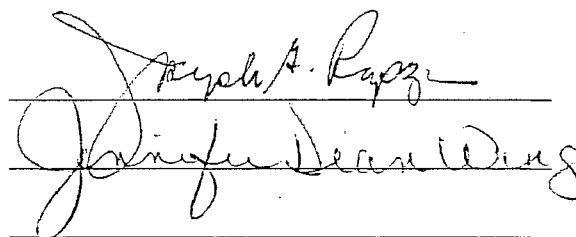 Joseph A.
Jennifer Dean Wing